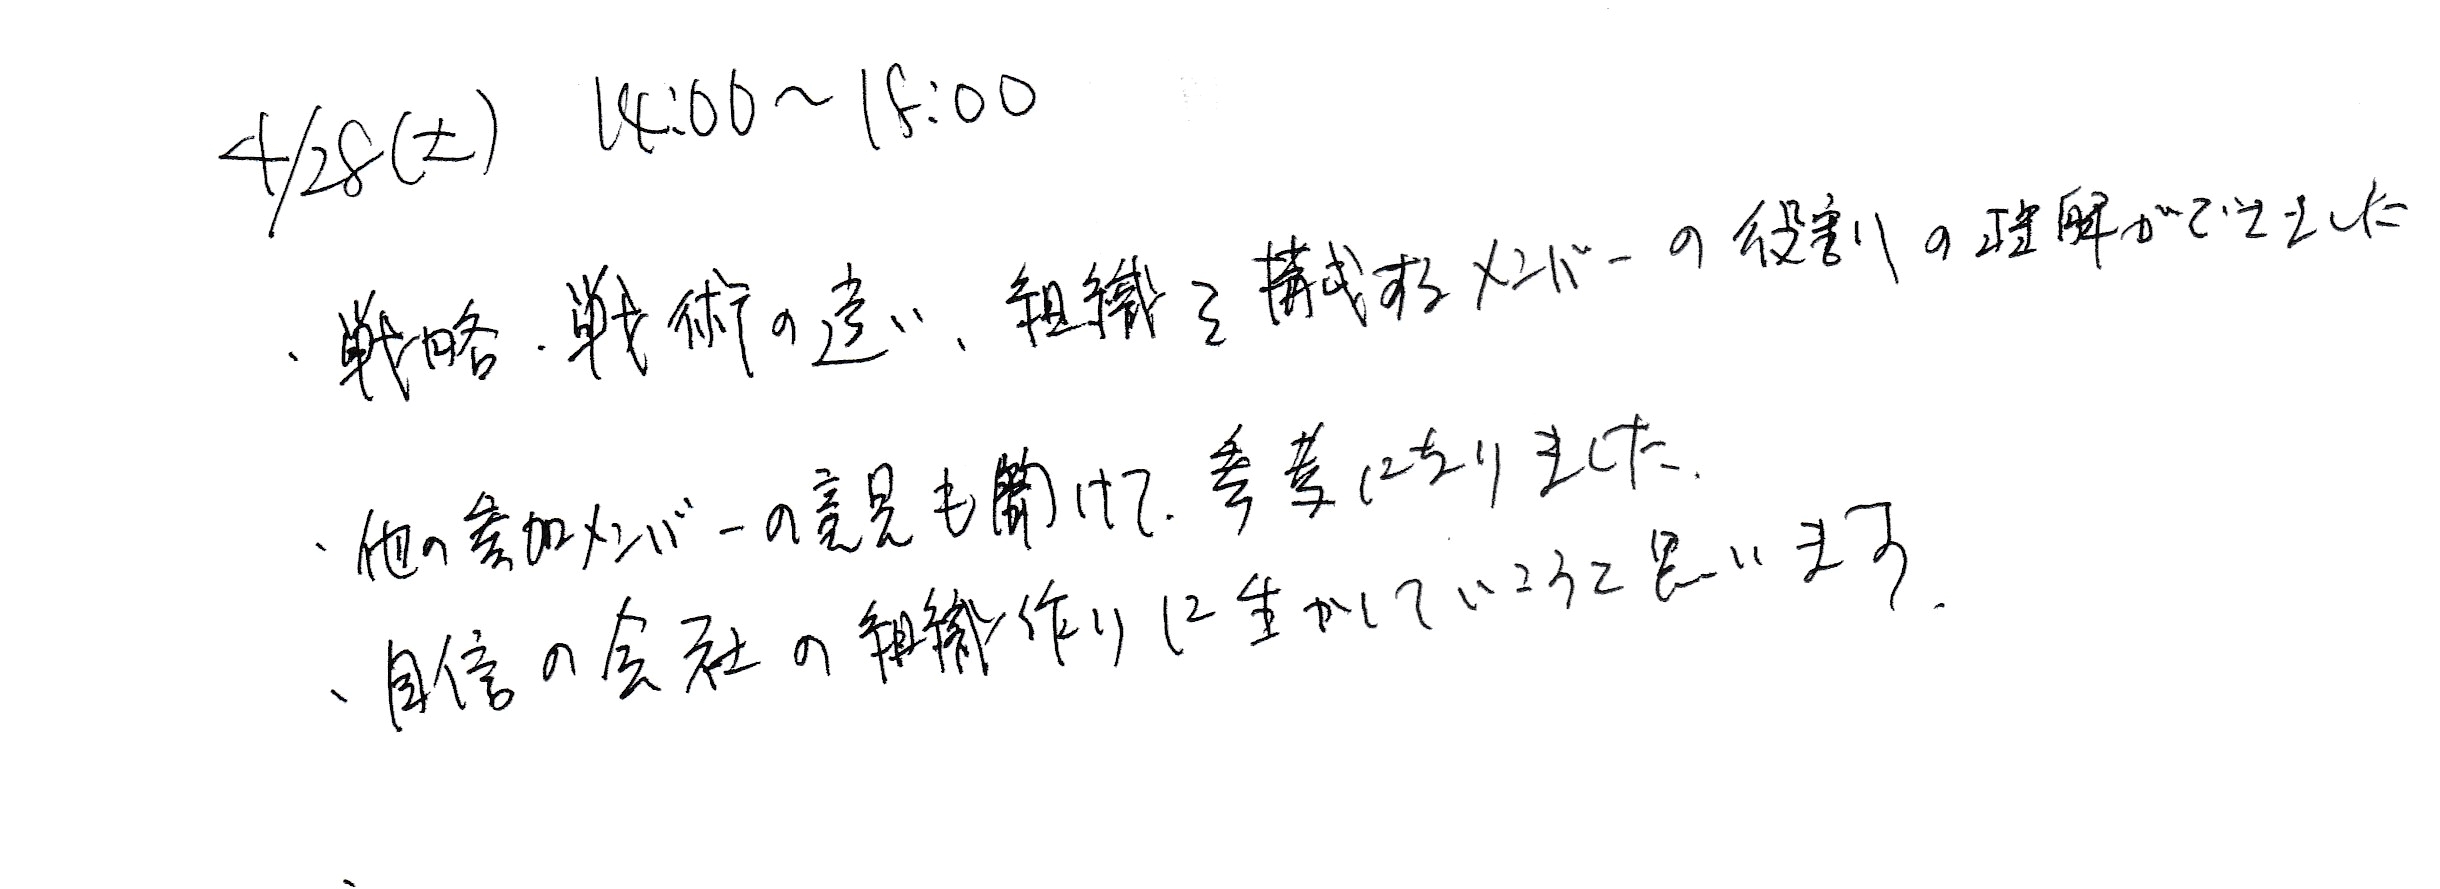 4/28(土) 14:00〜18:00
・戦略・戦術の違い、組織を構成するメンバーの役割りの理解ができました
・他の参加メンバーの意見も聞けて、参考になりました。
・自信の会社の組織作りに生かしていこうと思います。